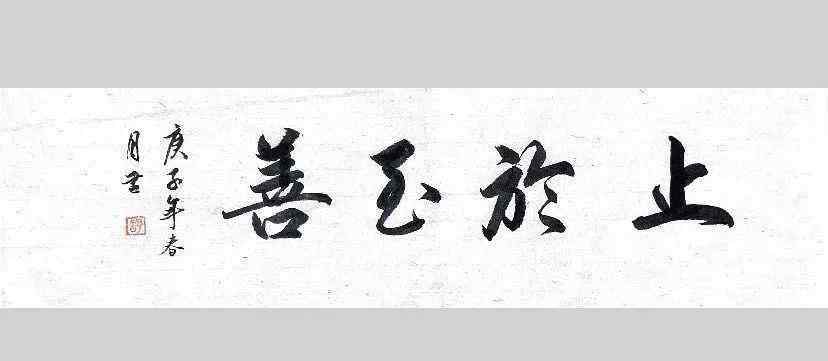 止於至善
庚子年春
月